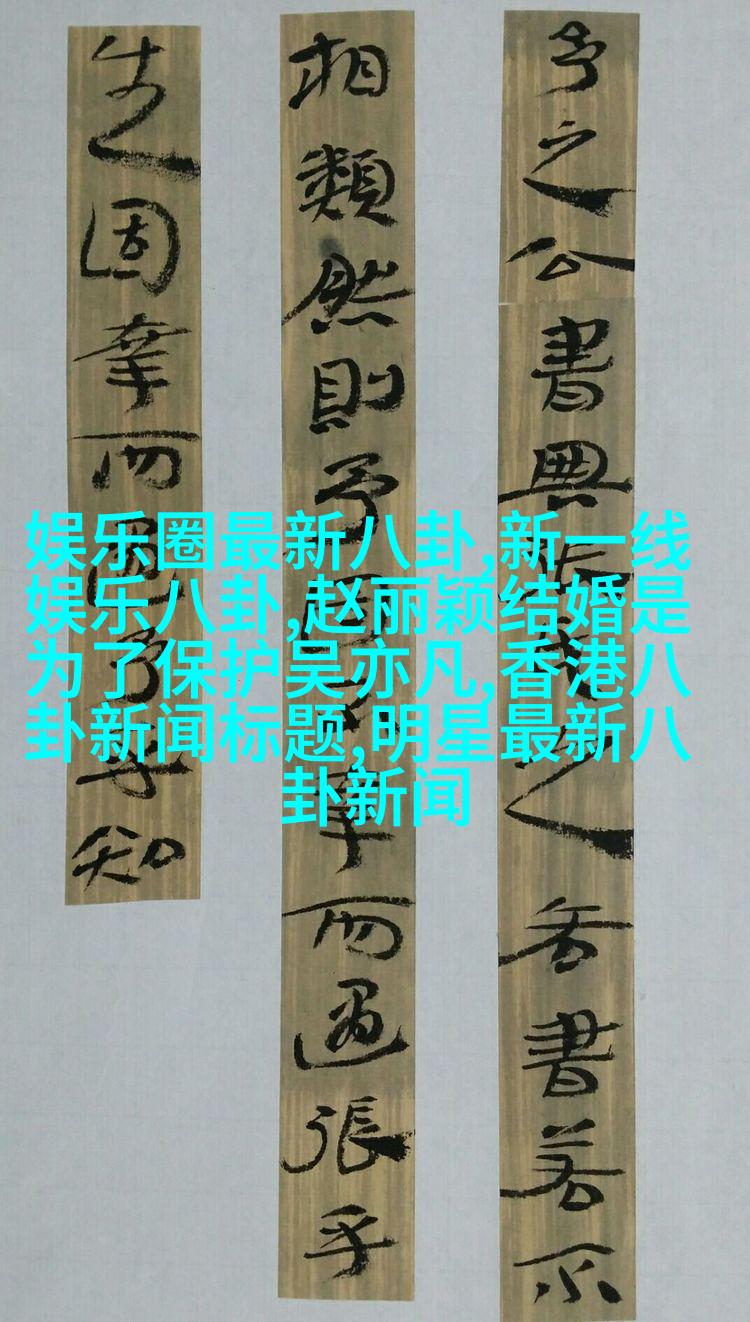 之公書與之書若不
相類然則予固幸而遇張乎
生固幸而遇予乎知
娱乐圈最新八卦,新一线
娱乐八卦,赵丽颖结婚是
为了保护吴亦凡,香港八
卦新闻标题,明星最新八
卦新闻